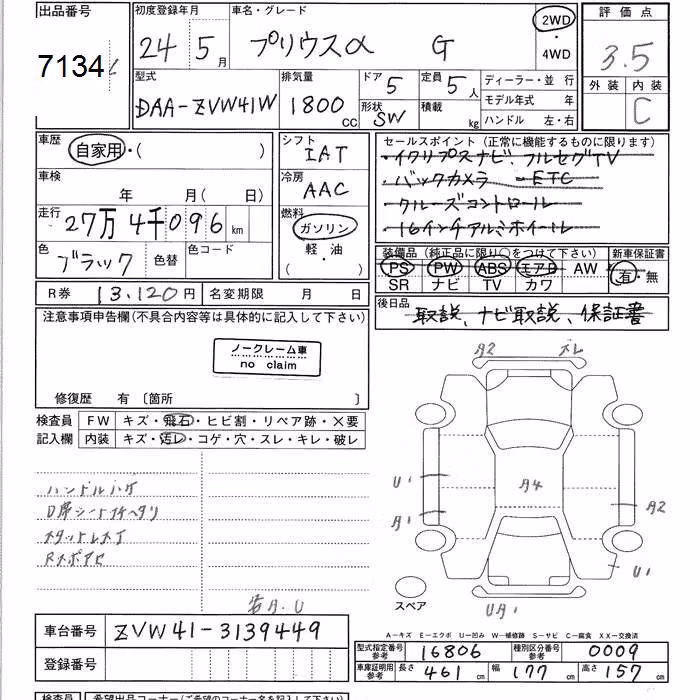 出品番号
7134
初度登録年月
24 5月
車名・グレード
プリウスα G
2WD
・
4WD
評価点
3.5
外装 内装
C
型式
DAA-ZVW41W
排気量
1800 CC
ドア 5
形状 SW
定員 5人
積載 kg
ディーラー・並 行
モデル年式 年
ハンドル 左・右
車歴
自家用・( )
シフト
IAT
車検
年 月( 日)
冷房
AAC
走行
27万 4千096 km
燃料
ガソリン
軽・油
( )
色
ブラック
色替
色コード
R券 13,120円
名変期限 月 日
セールスポイント(正常に機能するものに限ります)
・イクリプスナビ、フルセグTV
・バックカメラ ・ETC
・クルーズコントロール
・16インチアルミホイール
装備品(純正品に限り○をつけて下さい)
新車保証書
PS PW ABS エアB AW
SR ナビ TV カワ
有・無
後日品
取説、ナビ取説、保証書
注意事項申告欄(不具合内容等は具体的に記入して下さい)
ノークレーム車
no claim
修復歴 有 〔箇所 〕
検査員
記入欄
FW キズ・飛石・ヒビ割・リペア跡・X要
内装 キズ・汚レ・コゲ・穴・スレ・キレ・破レ
ハンドルハゲ
D席シートスレヘタリ
Rスポアセ
A2
ズレ
U1
A1
A4
A2
U1
UA1
スペア
A-キズ E-エクボ U-凹み W-補修跡 S-サビ C-腐食 XX-交換済
車台番号 ZVW41-3139449
登録番号
型式指定番号
参考
16806
種別区分番号
参考
0009
車庫証明用
参考
長さ 461 cm 幅 177 cm 高さ 157 cm
検査員
希望出品コーナー(ご希望のコーナー名を記入下さい)